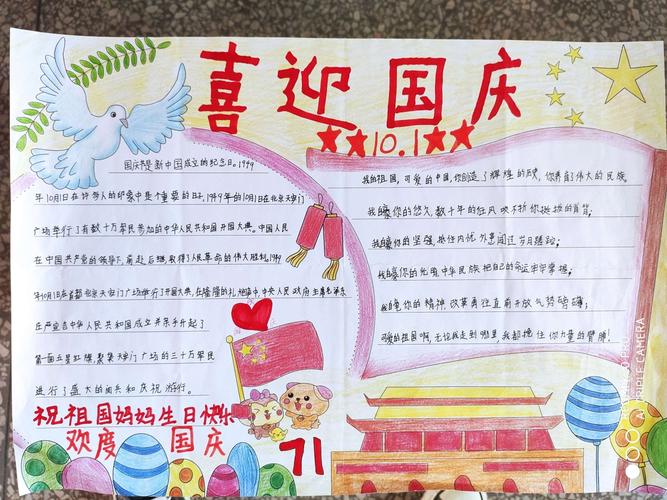 喜迎国庆
★★10.1★★
国庆节是新中国成立的纪念日。1949
年10月1日在许多人的印象中是个重要的日子,1949年的10月1日在北京天安门
广场举行了有数十万军民参加的中华人民共和国开国大典。中国人民
在中国共产党的领导下,前赴后继取得了人民革命的伟大胜利。1949
年10月1日在首都北京天安门广场举行了开国大典,在隆隆的礼炮声中,中央人民政府主席毛泽东
庄严宣告中华人民共和国成立并亲手升起了
第一面五星红旗,聚集天安门广场的三十万军民
进行了盛大的阅兵和庆祝游行。
祝祖国妈妈生日快乐
欢度国庆
我的祖国,可爱的中国,你创造了辉煌的历史,你养育了伟大的民族。
我你的悠久,数千年的狂风吹不折你挺拔的背脊;
我你的坚强,抵住内忧外患闯过岁月蹉跎;
我你的光明中华民族把自己的命运牢牢掌握;
我你的精神,改革勇往直前开放气势磅礴;
可爱的祖国啊,无论我走到哪里,我都挽住你力量的臂膊!
71
AI TRIPLE CAMERA